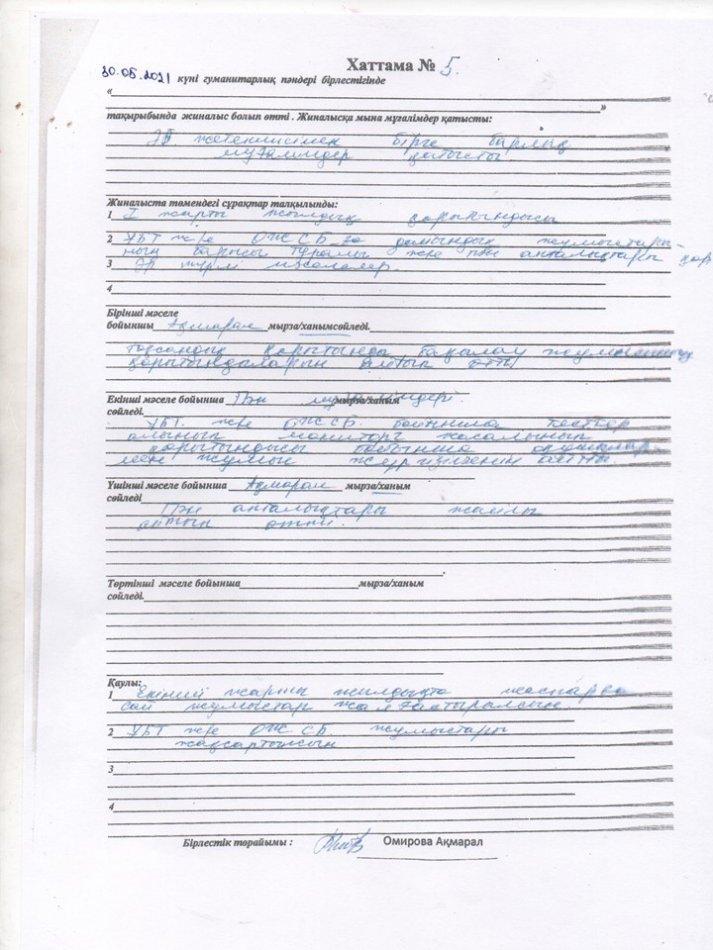 Хаттама № 5.
30.05.2021 күні гуманитарлық пәндері бірлестігінде
«
»
тақырыбында жиналыс болып өтті. Жиналысқа мына мұғалімдер қатысты:
ӘБ жетекшісімен бірге барлық
мұғалімдер қатысты
Жиналыста төмендегі сұрақтар талқыланды:
1 I жарты жылдық қорытындысы
2 ҰБТ және ОЖСБ жұмыстары-
ның барысы туралы және пән апталықтары
3 Әр түрлі мәселелер.
4
Бірінші мәселе
бойыншы Ақмарал мырза/ханымсөйледі.
тоқсандық қорытынды бағалау
қорытындыларын айтып өтті
Екінші мәселе бойынша Пән мұғалімдері. мырза/ханым
сөйледі.
ҰБТ және ОЖСБ бойынша тесттер
алынып мониторг жасалынып
қорытындысы бойынша
мен жұмыс жүргізілгенін айтты
Үшінші мәселе бойынша Ақмарал мырза/ханым
сөйледі
Пән апталықтары жайлы
айтып өтті.
Төртінші мәселе бойынша мырза/ханым
сөйледі.
Қаулы:
1 Екінші жарты жылдықта жоспарға
сай жұмыстар жалғастыралсын.
2 ҰБТ және ОЖСБ жұмыстары
жақсартылсын
3
4
Бірлестік торайымы : Омирова Ақмарал